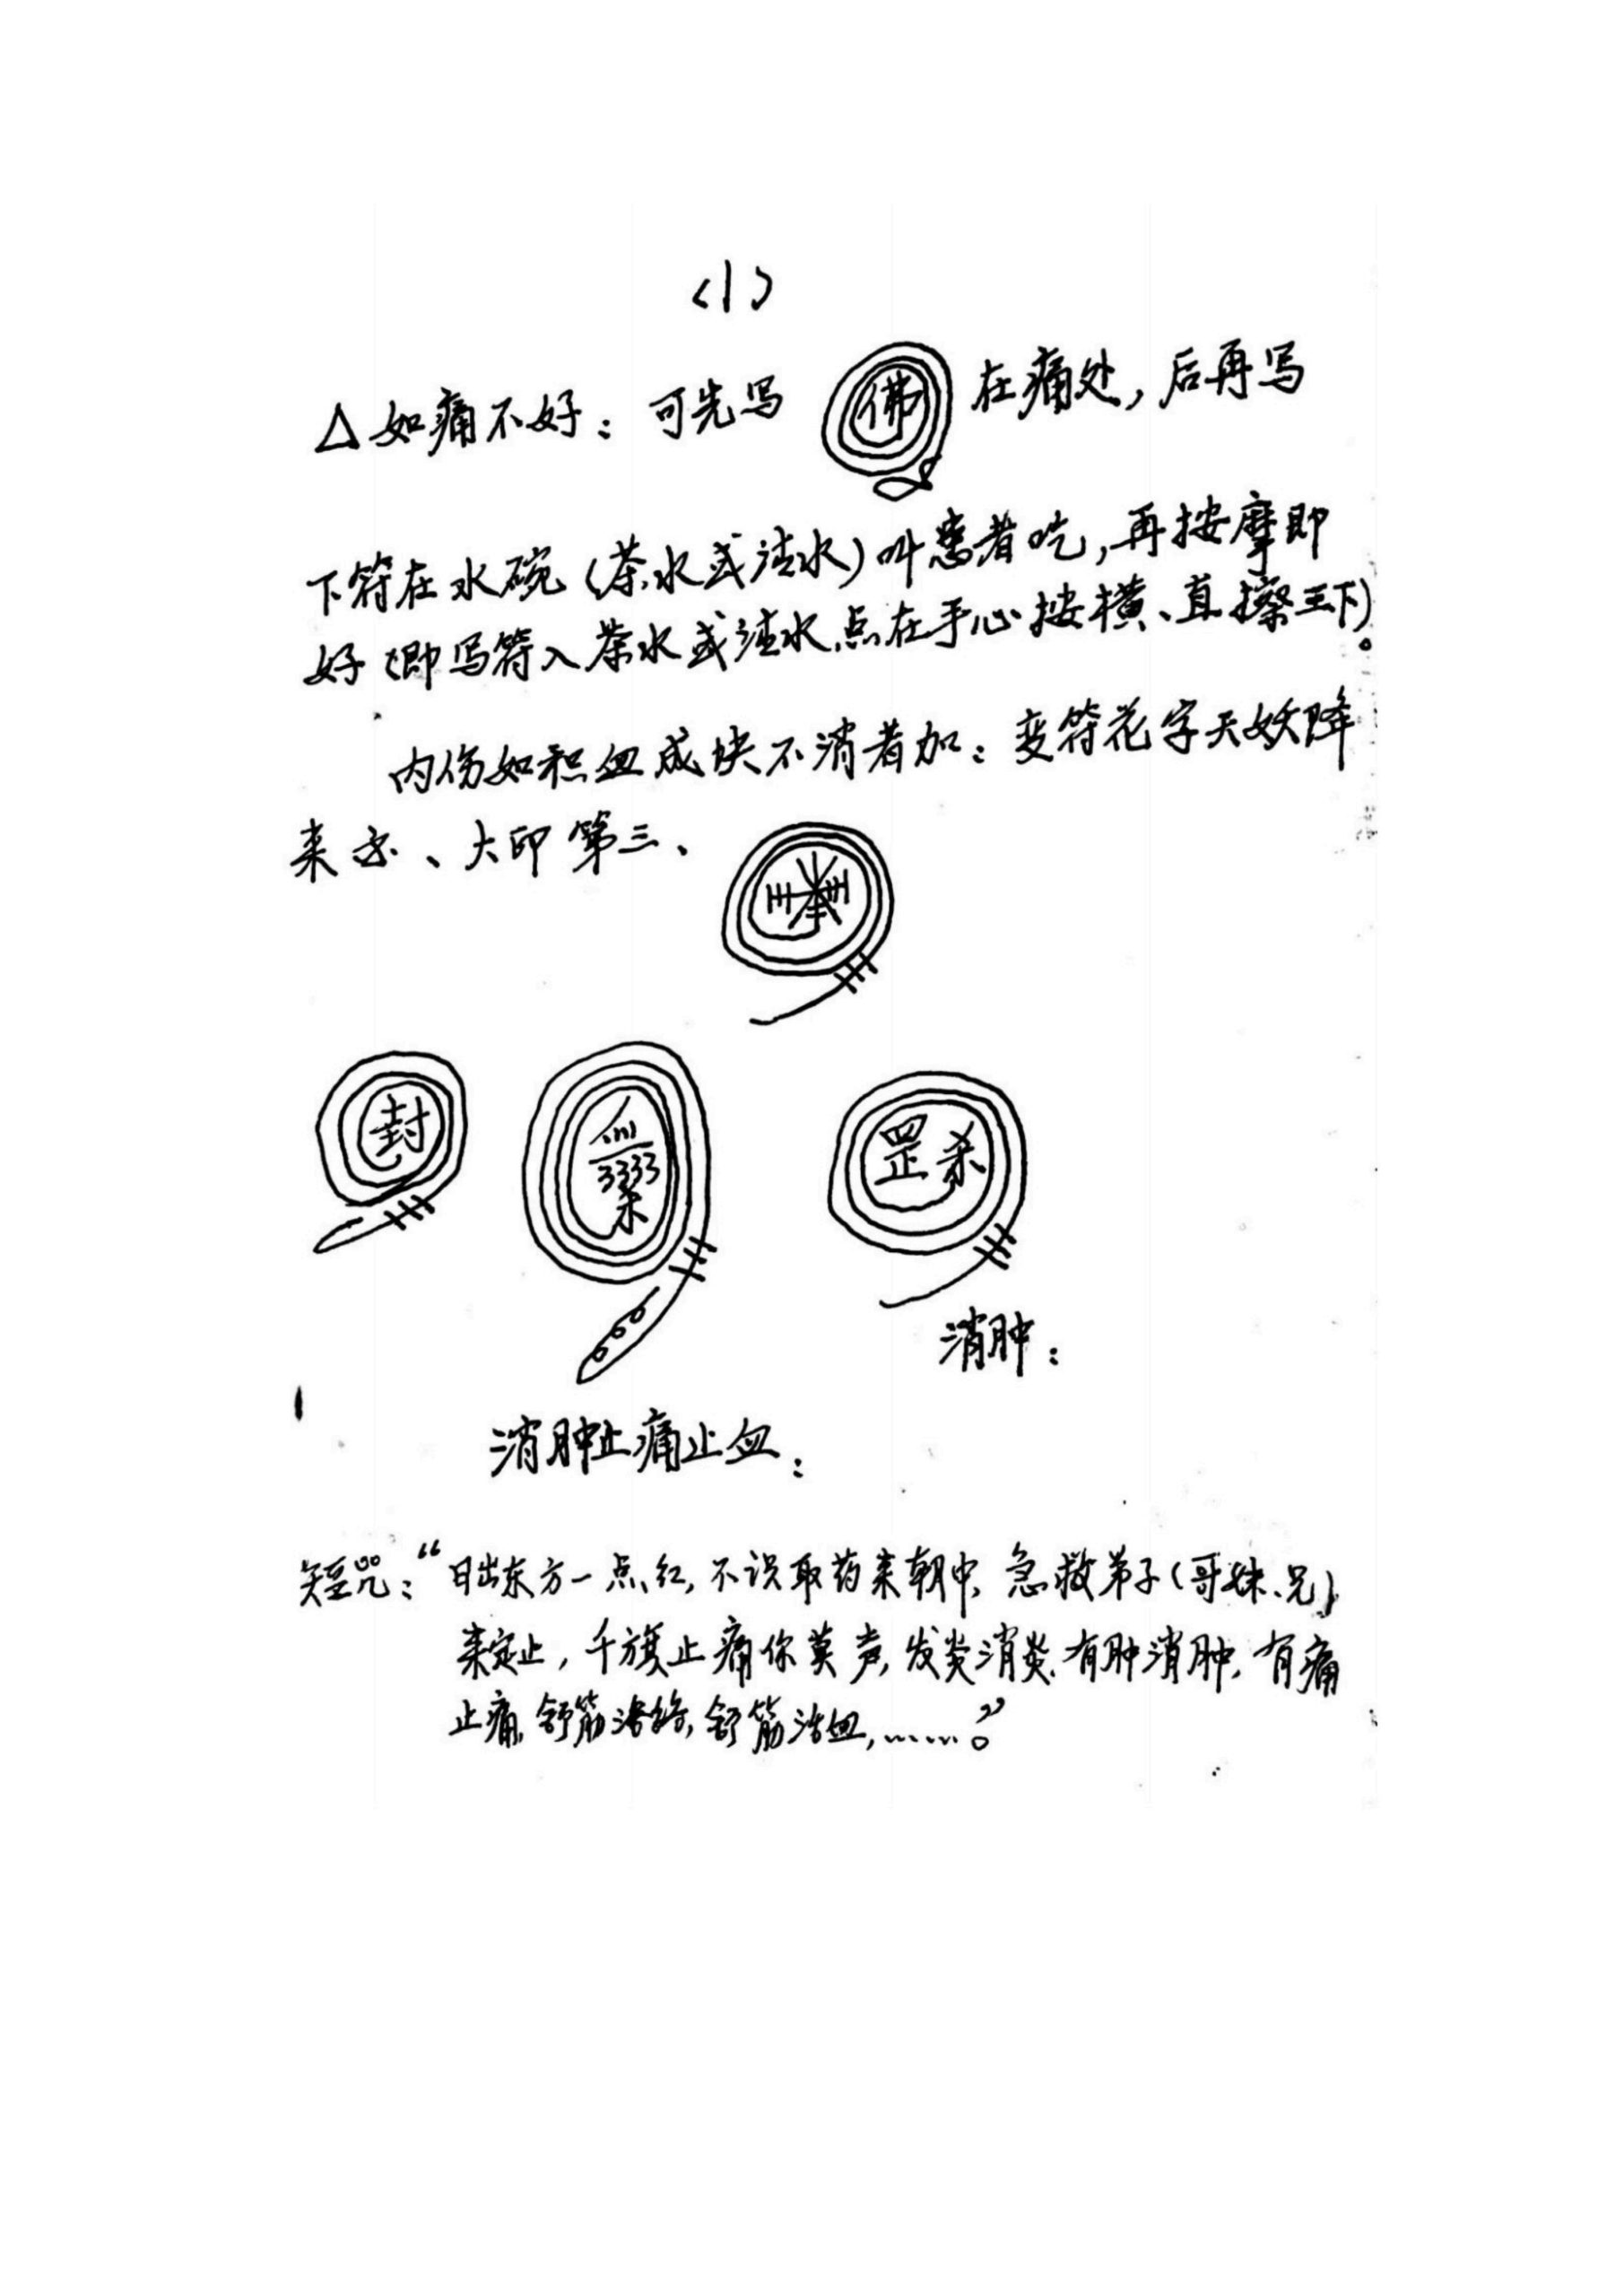 <1>
△如痛不好：可先写 佛 在痛处，后再写
下符在水碗（茶水或渣水）叫患者吃，再按摩即
好（即写符入茶水或渣水点在手心按横、直擦三下）。
内伤如积血成块不消者加：变符花字天妖降
来 、大印第三、
封
罡杀
消肿：
消肿止痛止血：
短咒：“日出东方一点红，不误取药来朝中，急救弟子（哥妹、兄）
来定止，千旗止痛你莫声，发炎消炎、有肿消肿，有痛
止痛，舒筋活络，舒筋活血，……。”